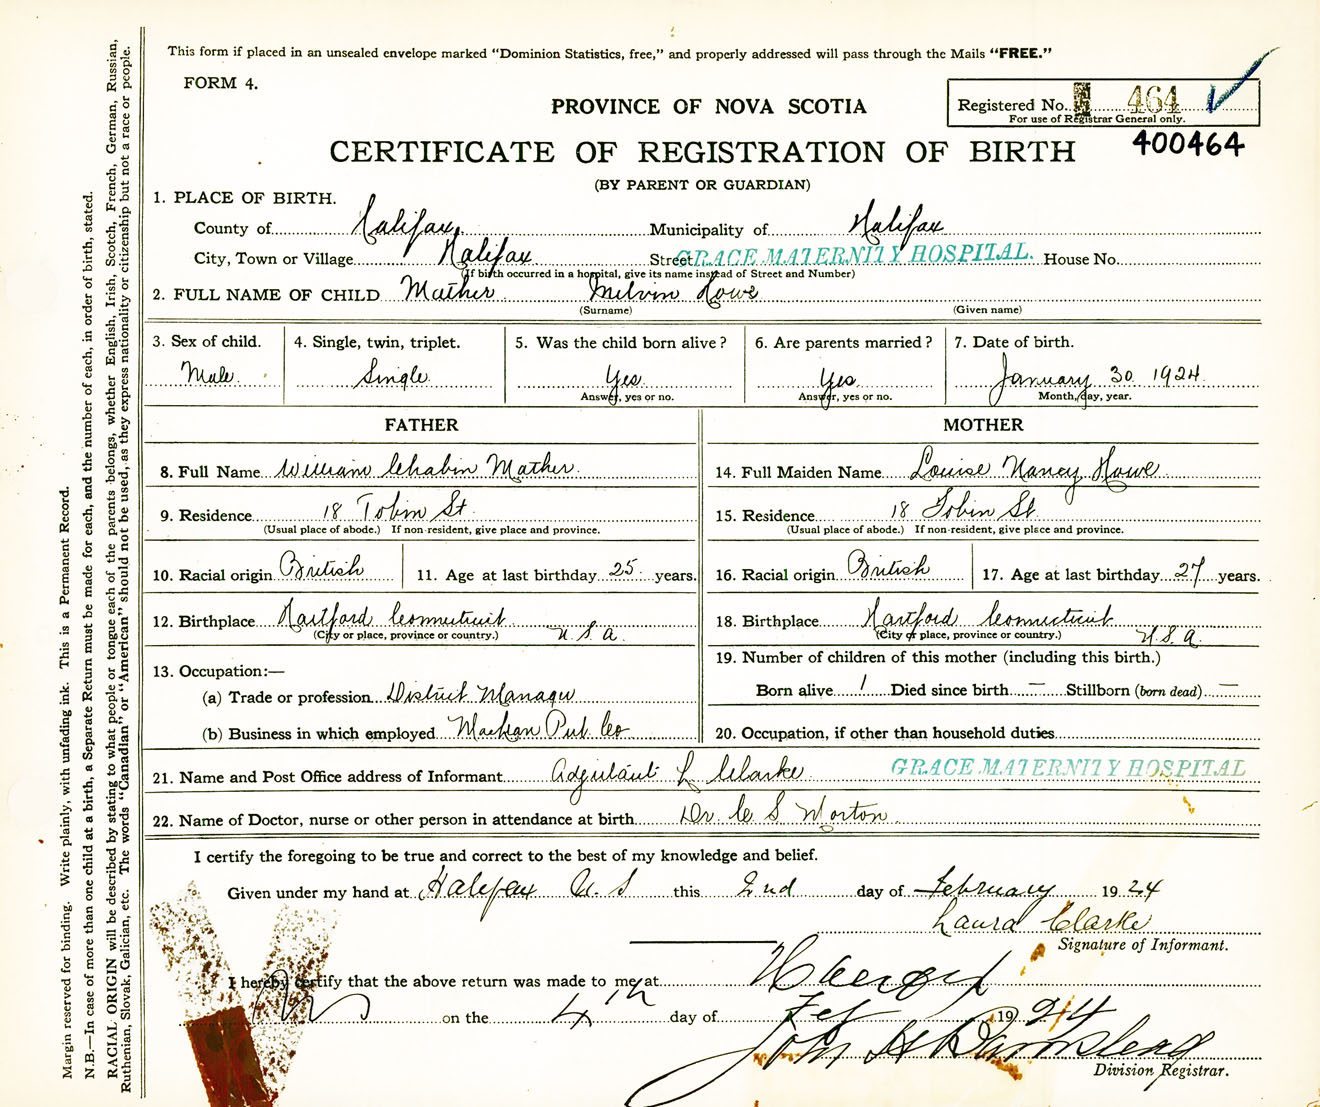 This form if placed in an unsealed envelope marked "Dominion Statistics, free," and properly addressed will pass through the Mails "FREE."
FORM 4.
PROVINCE OF NOVA SCOTIA
Registered No. 464
For use of Registrar General only.
400464
CERTIFICATE OF REGISTRATION OF BIRTH
(BY PARENT OR GUARDIAN)
1. PLACE OF BIRTH.
County of Halifax Municipality of Halifax
City, Town or Village Halifax Street GRACE MATERNITY HOSPITAL. House No.
(If birth occurred in a hospital, give its name instead of Street and Number)
2. FULL NAME OF CHILD Mather Melvin Howe
(Surname) (Given name)
3. Sex of child. 4. Single, twin, triplet. 5. Was the child born alive? 6. Are parents married? 7. Date of birth.
Male Single Yes Yes January 30 1924
Answer, yes or no. Answer, yes or no. Month, day, year.
FATHER MOTHER
8. Full Name William Chabin Mather 14. Full Maiden Name Louise Nancy Howe
9. Residence 18 Tobin St 15. Residence 18 Tobin St
(Usual place of abode.) If non-resident, give place and province. (Usual place of abode.) If non-resident, give place and province.
10. Racial origin British 11. Age at last birthday 25 years. 16. Racial origin British 17. Age at last birthday 27 years.
12. Birthplace Hartford Connecticut 18. Birthplace Hartford Connecticut
(City or place, province or country.) U.S.A. (City or place, province or country.) U.S.A.
13. Occupation:— 19. Number of children of this mother (including this birth.)
(a) Trade or profession District Manager Born alive 1 Died since birth — Stillborn (born dead) —
(b) Business in which employed Pub. Co 20. Occupation, if other than household duties
21. Name and Post Office address of Informant Adjutant L Clarke GRACE MATERNITY HOSPITAL
22. Name of Doctor, nurse or other person in attendance at birth Dr. C S Morton
I certify the foregoing to be true and correct to the best of my knowledge and belief.
Given under my hand at Halifax N.S this 2nd day of February 1924
Laura Clarke
Signature of Informant.
I hereby certify that the above return was made to me at
on the 4th day of Feb 1924
John H Barnstead
Division Registrar.
Margin reserved for binding. Write plainly, with unfading ink. This is a Permanent Record.
N.B.—In case of more than one child at a birth, a Separate Return must be made for each, and the number of each, in order of birth, stated.
RACIAL ORIGIN will be described by stating to what people or tongue each of the parents belongs, whether English, Irish, Scotch, French, German, Russian,
Ruthenian, Slovak, Galician, etc. The words "Canadian" or "American" should not be used, as they express nationality or citizenship but not a race or people.